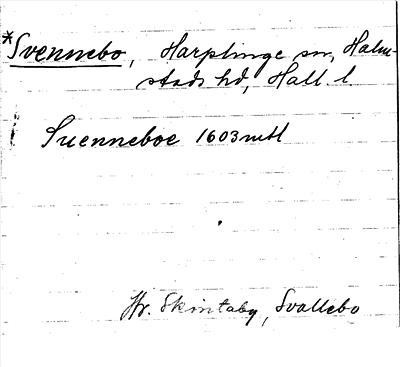 *Svennebo, Harplinge sn, Halm-
stads hd, Hall. l.
Suenneboe 1603 mtl
Hr. Skintaby, Svallebo